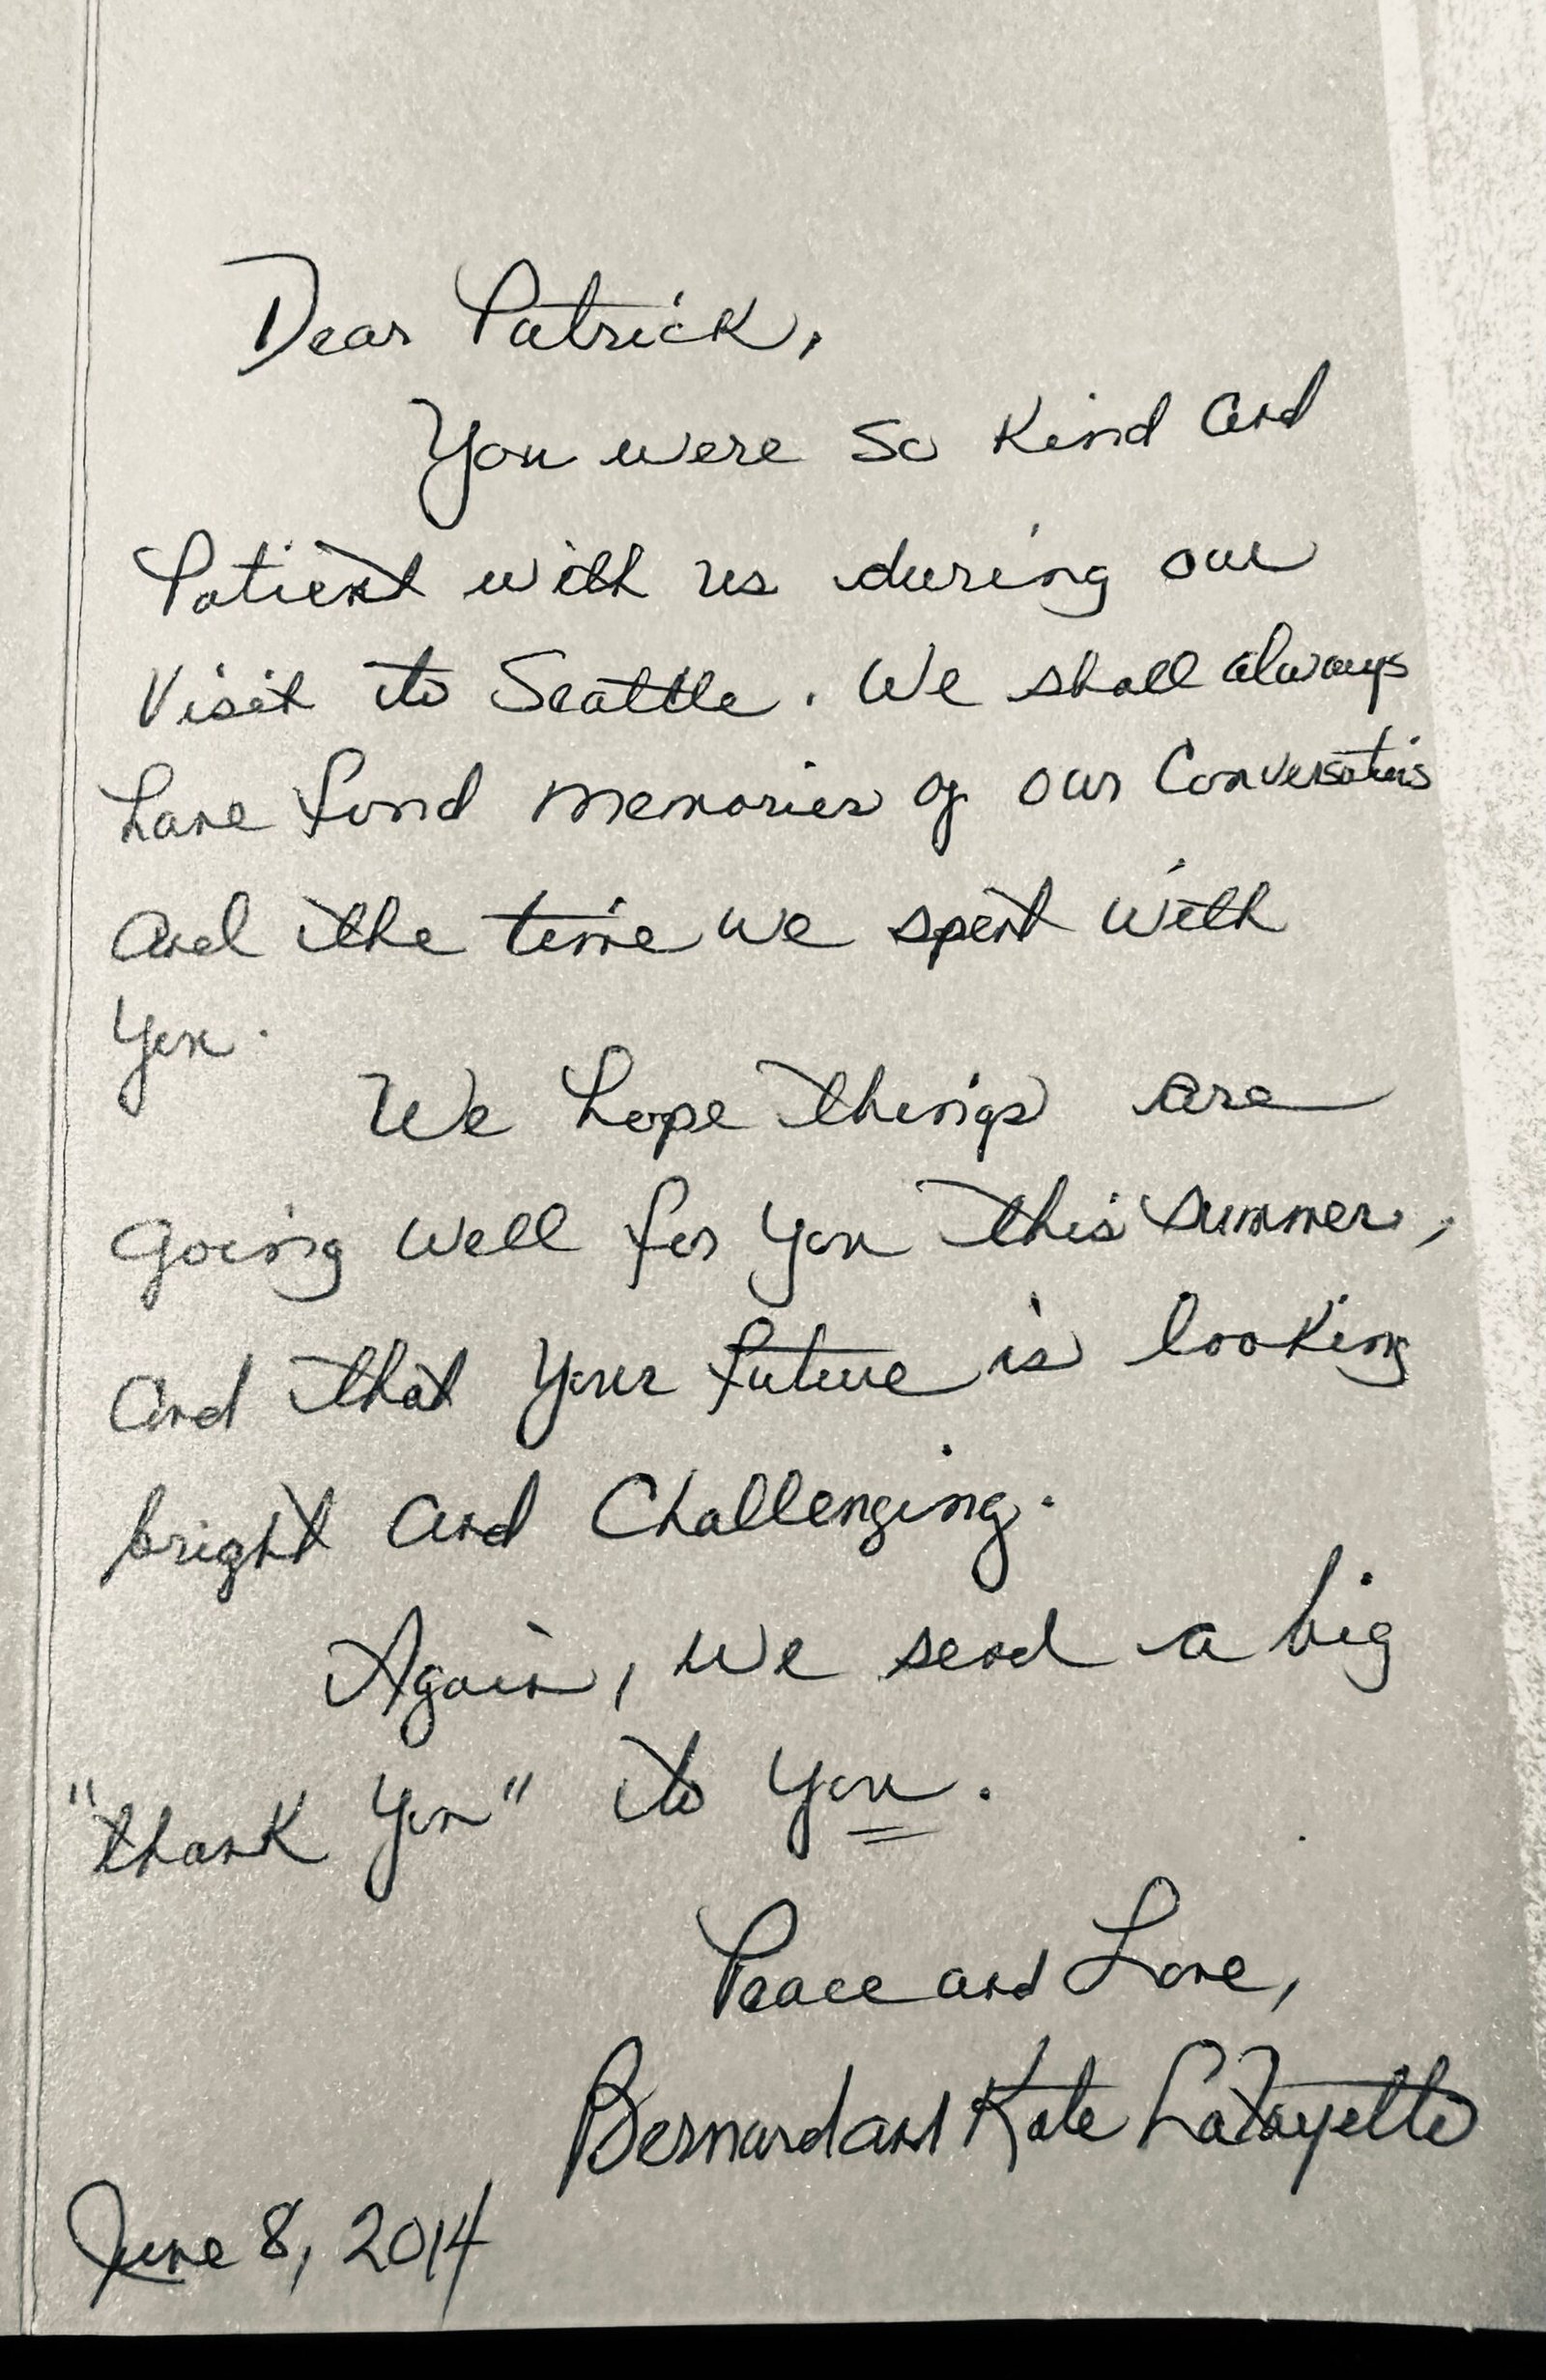 Dear Patrick,
You were so kind and
Patient with us during our
Visit to Seattle. We shall always
have fond memories of our Conversations
and the time we spent with
you.
We hope things are
going well for you this summer,
and that your future is looking
bright and Challenging.
Again, we send a big
"thank you" to you.
Peace and Love,
Bernard and Kate LaFayette
June 8, 2014